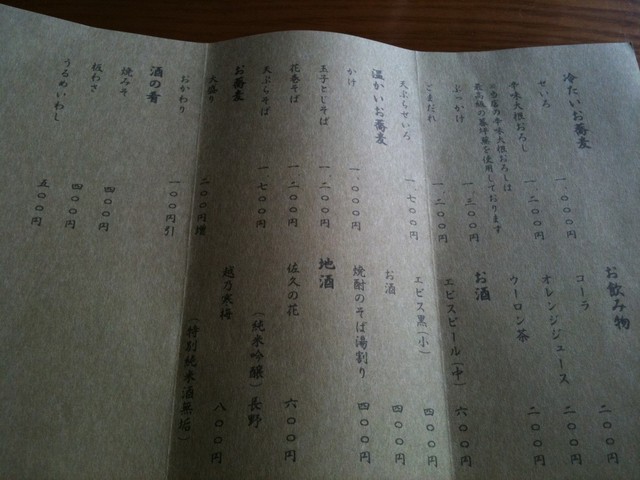 冷たいお蕎麦
せいろ 一、〇〇〇円
辛味大根おろし 一、二〇〇円
※当店の辛味大根おろしは
最高級の暮坪蕪を使用しております
ぶっかけ 一、三〇〇円
ごまだれ 一、二〇〇円
天ぷらせいろ 一、七〇〇円
温かいお蕎麦
かけ 一、〇〇〇円
玉子とじそば 一、二〇〇円
花巻そば 一、二〇〇円
天ぷらそば 一、七〇〇円
お蕎麦
大盛り 二〇〇円増
おかわり 一〇〇円引
酒の肴
焼みそ 四〇〇円
板わさ 四〇〇円
うるめいわし 五〇〇円
お飲み物
コーラ 二〇〇円
オレンジジュース 二〇〇円
ウーロン茶 二〇〇円
お酒
エビスビール(中) 六〇〇円
エビス黒(小) 四〇〇円
お酒 四〇〇円
焼酎のそば湯割り 四〇〇円
地酒
佐久の花 六〇〇円
(純米吟醸)長野
越乃寒梅 八〇〇円
(特別純米酒無垢)